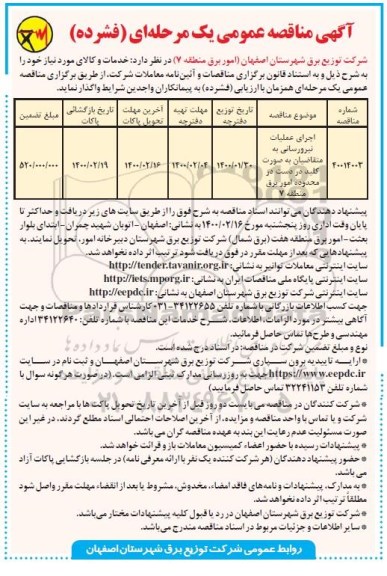 آگهی مناقصه عمومی یک مرحله‌ای (فشرده)
شرکت توزیع برق شهرستان اصفهان (امور برق منطقه ۷) در نظر دارد: خدمات و کالای مورد نیاز خود را
به شرح ذیل و به استناد قانون برگزاری مناقصات و آئین‌نامه معاملات شرکت، از طریق برگزاری مناقصه
عمومی یک مرحله‌ای همزمان با ارزیابی (فشرده) به پیمانکاران واجدین شرایط واگذار نماید.
شماره مناقصه
موضوع مناقصه
تاریخ توزیع دفترچه
مهلت تهیه دفترچه
آخرین مهلت تحویل پاکات
تاریخ بازگشائی پاکات
مبلغ تضمین
۴۰۰۱۴۰۰۳
اجرای عملیات
نیرورسانی به
متقاضیان به صورت
کلید در دست در
محدوده امور برق
منطقه ۷
۱۴۰۰/۰۱/۳۰
۱۴۰۰/۰۲/۰۴
۱۴۰۰/۰۲/۱۶
۱۴۰۰/۰۲/۱۹
۵۲۰/۰۰۰/۰۰۰
پیشنهاد دهندگان می‌توانند اسناد مناقصه به شرح فوق را از طریق سایت های زیر دریافت و حداکثر تا
پایان وقت اداری روز پنجشنبه مورخ ۱۴۰۰/۰۲/۱۶ به نشانی: اصفهان - اتوبان شهید چمران - ابتدای بلوار
بعثت - امور برق منطقه هفت (برق شمال) شرکت توزیع برق شهرستان دبیرخانه امور، تحویل نمایند. به
پیشنهادهایی که بعد از مهلت مقرر در فوق دریافت شود ترتیب اثر داده نخواهد شد.
سایت اینترنتی معاملات توانیر به نشانی: http://tender.tavanir.org.ir
سایت اینترنتی پایگاه ملی مناقصات ایران به نشانی: http://iets.mporg.ir
سایت اینترنتی شرکت توزیع برق شهرستان اصفهان به نشانی: http://eepdc.ir
جهت کسب اطلاعات بازرگانی با شماره تلفن ۳۴۱۲۲۶۵۵-۰۳۱ کارشناس قراردادها و مناقصات و جهت
آگاهی بیشتر در مورد الزامات، اطلاعات، شرح خدمات این مناقصه با شماره تلفن: ۳۴۱۲۲۶۴۰ اداره
مهندسی و طرح‌ها تماس حاصل فرمائید.
نوع و مبلغ تضمین شرکت در مناقصه: در اسناد درج شده است.
● ارایه تاییدیه برون سپاری شرکت توزیع برق شهرستان اصفهان و ثبت نام در سایت
https://www.eepdc.ir جهت به روز رسانی مدارک ثبتی الزامی است. (در صورت هرگونه سوال با
شماره تلفن ۳۲۲۴۱۱۵۳ تماس حاصل فرمایید)
● شرکت کنندگان در مناقصه می‌بایست دو روز قبل از آخرین تاریخ تحویل پاکت ها با مراجعه به سایت
شرکت و یا تماس با واحد مناقصه و مزایده، از آخرین اصلاحات احتمالی اسناد مطلع گردند، در غیر این
صورت مسئولیت عدم رعایت این بند به عهده مناقصه گران می باشد.
● پیشنهادات رسیده با حضور اعضاء کمیسیون معاملات باز و قرائت خواهد شد.
● حضور پیشنهاد دهندگان (هر شرکت کننده یک نفر با ارائه معرفی نامه) در جلسه بازگشایی پاکات آزاد
می باشد.
● به مدارک، پیشنهادات و نامه‌های فاقد امضاء، مخدوش، مشروط یا بعد از انقضاء مهلت مقرر واصل شود
مطلقاً ترتیب اثر داده نخواهد شد.
● شرکت توزیع برق شهرستان اصفهان در رد یا قبول کلیه پیشنهادات مختار می‌باشد.
● سایر اطلاعات و جزئیات مربوط در اسناد مناقصه مندرج می‌باشد.
روابط عمومی شرکت توزیع برق شهرستان اصفهان